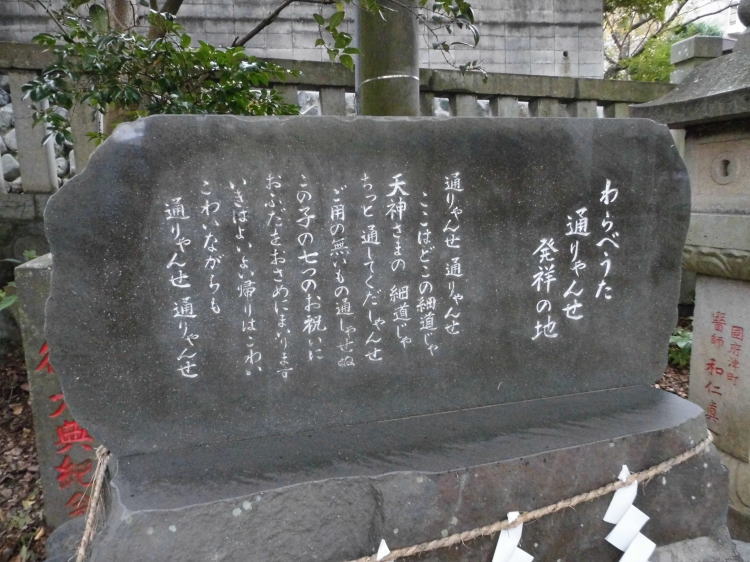 わらべうた
通りゃんせ
発祥の地
通りゃんせ 通りゃんせ
ここはどこの細道じゃ
天神さまの 細道じゃ
ちっと 通してくだしゃんせ
ご用の無いもの通しゃせぬ
この子の七つのお祝いに
おふだをおさめにまいります
いきはよいよい帰りはこわい
こわいながらも
通りゃんせ 通りゃんせ
國府津町
醫師 和仁真
大典紀